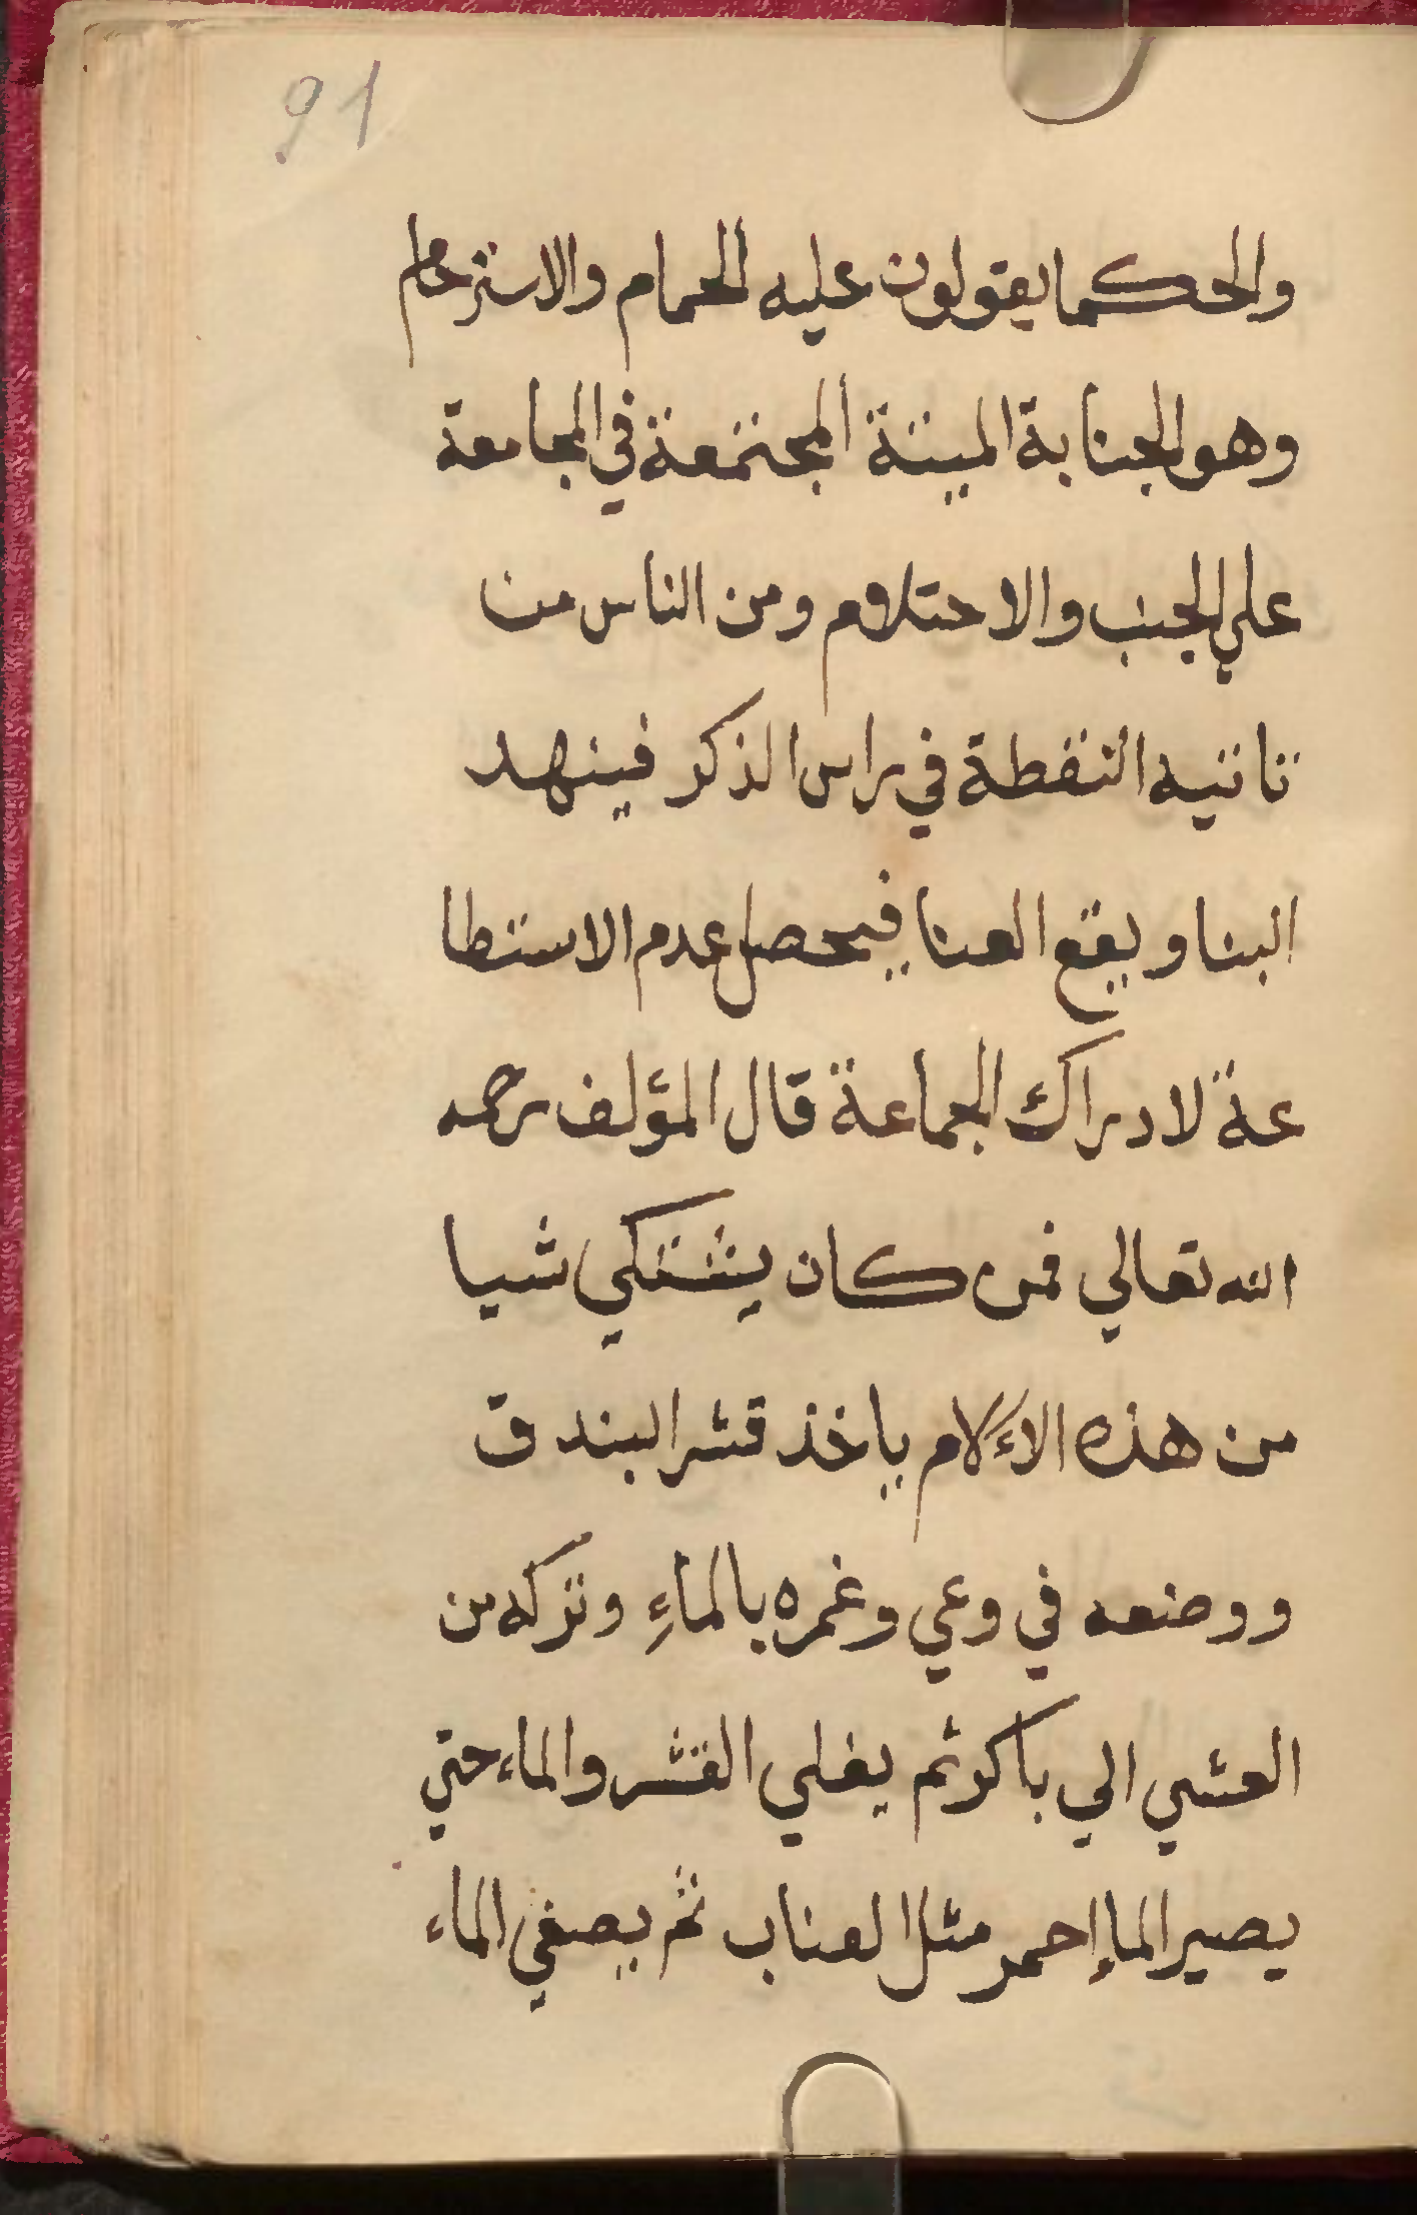 91
والحكما يقولون عليه الحمام والاسترحام
وهو الجنابة المبيتة المجتمعة في المجامعة
علي الجنب والاحتلام ومن الناس من
تاتيه النقطة في راس الذكر فينهد
البنا ويقع العنا فيحصل عدم الاستطا
عة لادراك الجماعة قال المؤلف رحمه
الله تعالي فمن كان يشتكي شيا
من هذه الاءلام ياخذ قشر البندق
ووضعه في وعي وغمره بالماءِ وتركه من
العشي الي باكر ثم يغلي القشر والماء حتي
يصير الماء احمر مثل العناب ثم يصفي الماء